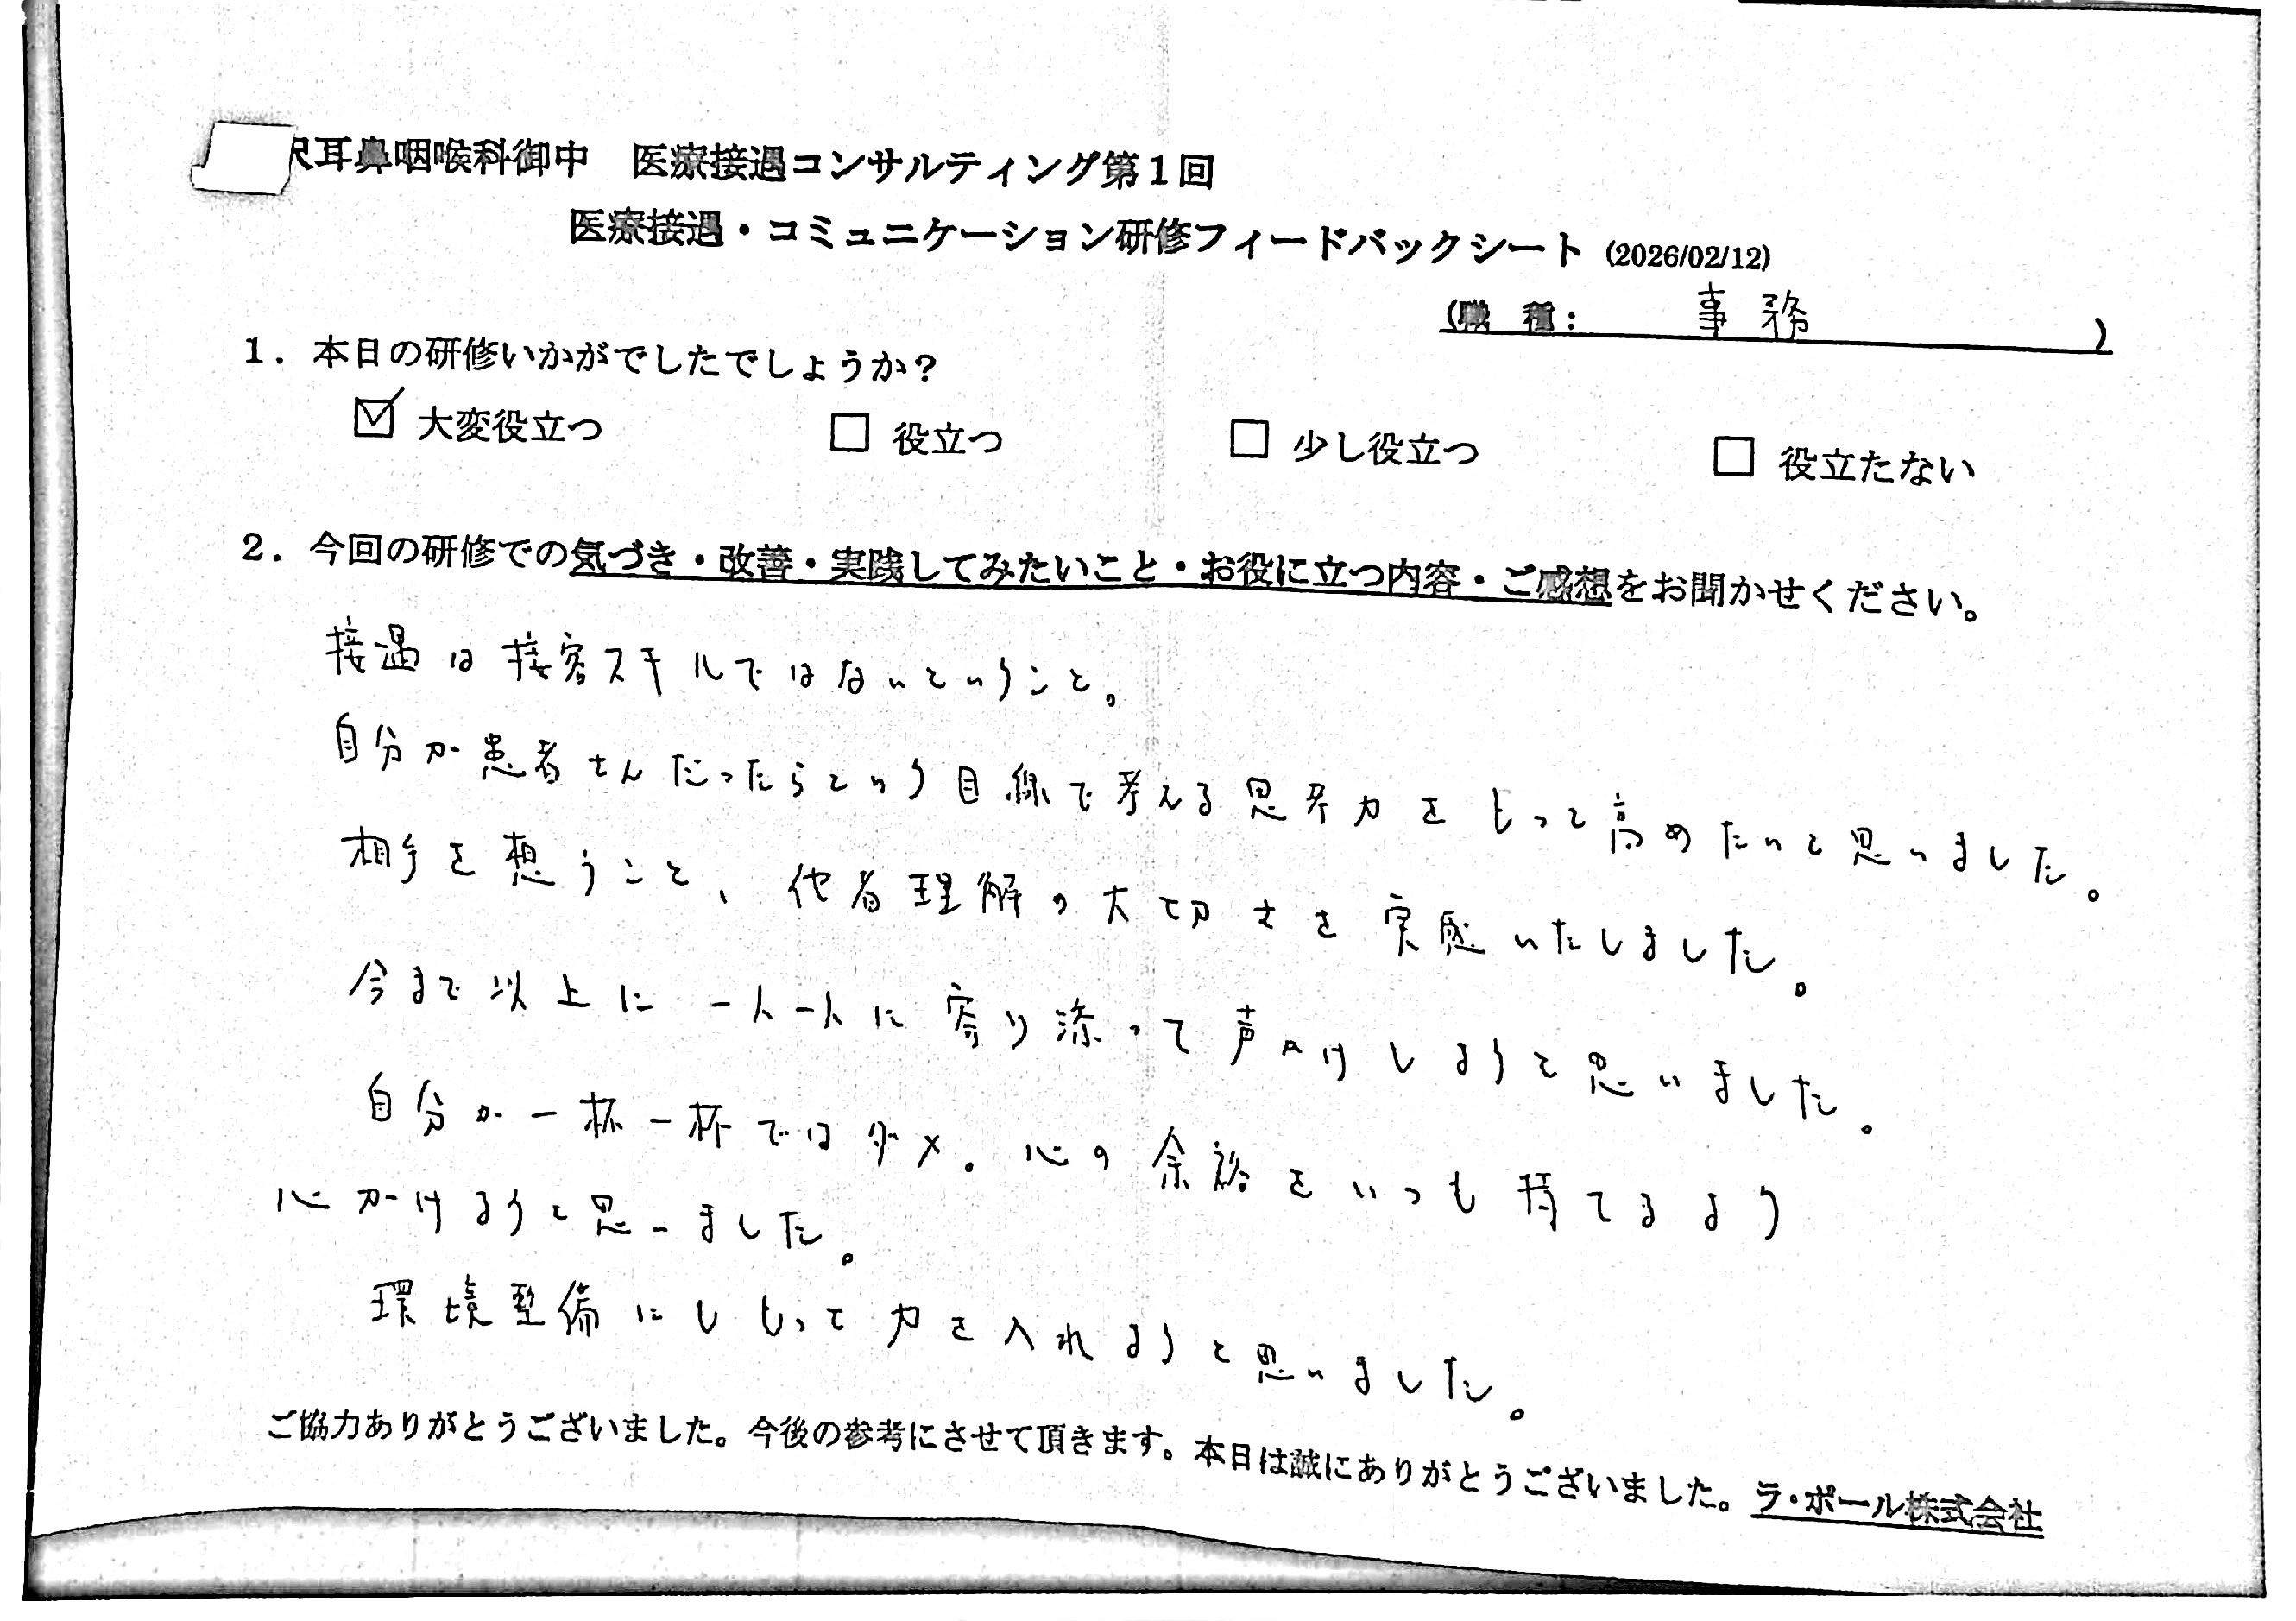 耳鼻咽喉科御中 医療接遇コンサルティング第1回
医療接遇・コミュニケーション研修フィードバックシート (2026/02/12)
(職 種: 事務 )
1. 本日の研修いかがでしたでしょうか?
☑ 大変役立つ □ 役立つ □ 少し役立つ □ 役立たない
2. 今回の研修での気づき・改善・実践してみたいこと・お役に立つ内容・ご感想をお聞かせください。
接遇は接客スキルではないということ。
自分が患者さんだったらという目線で考える思考力をもって高めたいと思いました。
相手を想うこと、他者理解の大切さを実感いたしました。
今まで以上に一人一人に寄り添って声かけしようと思いました。
自分が一杯一杯ではダメ。心の余裕をいつも持てるよう
心がけようと思いました。
環境整備にももって力を入れようと思いました。
ご協力ありがとうございました。今後の参考にさせて頂きます。本日は誠にありがとうございました。ラ・ポール株式会社